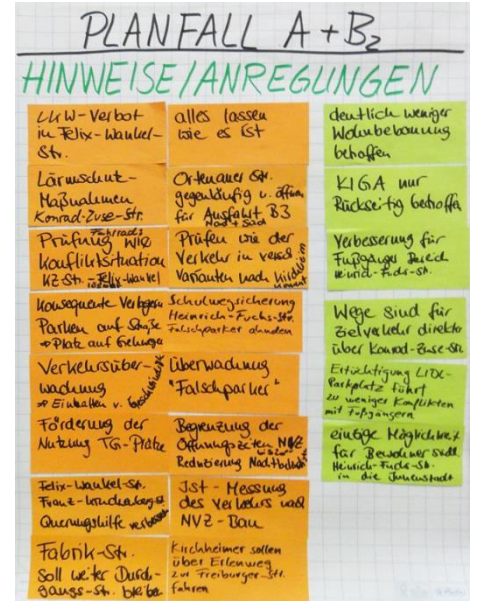 PLANFALL A + B2
HINWEISE/ANREGUNGEN
LKW-Verbot
in Felix-Wankel-
Str.
Lärmschutz-
Maßnahmen
Konrad-Zuse-Str.
Prüfung wie Fahrrad
Konfliktsituation
KZ-Str. - Felix-Wankel
Konsequente
Parken auf Straße
⇒ Platz auf Gehwegen
Verkehrsüber-
wachung
⇒ Einhalten v. Geschwindigkeit
Förderung der
Nutzung TG-Plätze
Felix-Wankel-St.
Querungshilfe verbessern
Fabrik-Str.
soll weiter Durch-
gangs-Str. bleiben
alles lassen
wie es ist
Ortenauer Str.
gegenläufig u. öffnen
für Ausfahrt B3
Nord + Süd
Prüfen wie der
Verkehr in versch.
Varianten nach Kirchheim
kommt
Schulwegsicherung
Heinrich-Fuchs-Str.
Falschparker ahnden
Überwachung
"Falschparker"
Begrenzung der
Öffnungszeiten NVZ
Reduzierung
Ist-Messung
des Verkehrs nach
NVZ-Bau
Kirchheimer sollen
über Erlenweg
zur Freiburger-Str.
fahren
deutlich weniger
Wohnbebauung
betroffen
KIGA nur
Rückseitig betroffen
Verbesserung für
Fußgänger Bereich
Heinrich-Fuchs-St.
Wege sind für
Zielverkehr direkter
über Konrad-Zuse-Str.
Ertüchtigung LIDL-
Parkplatz führt
zu weniger Konflikten
mit Fußgängern
einzige Möglichkeit
für Bewohner südl.
Heinrich-Fuchs-St.
in die Innenstadt